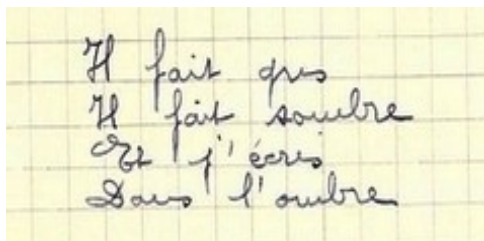 Il fait gris
Il fait sombre
Et j'écris
Dans l'ombre